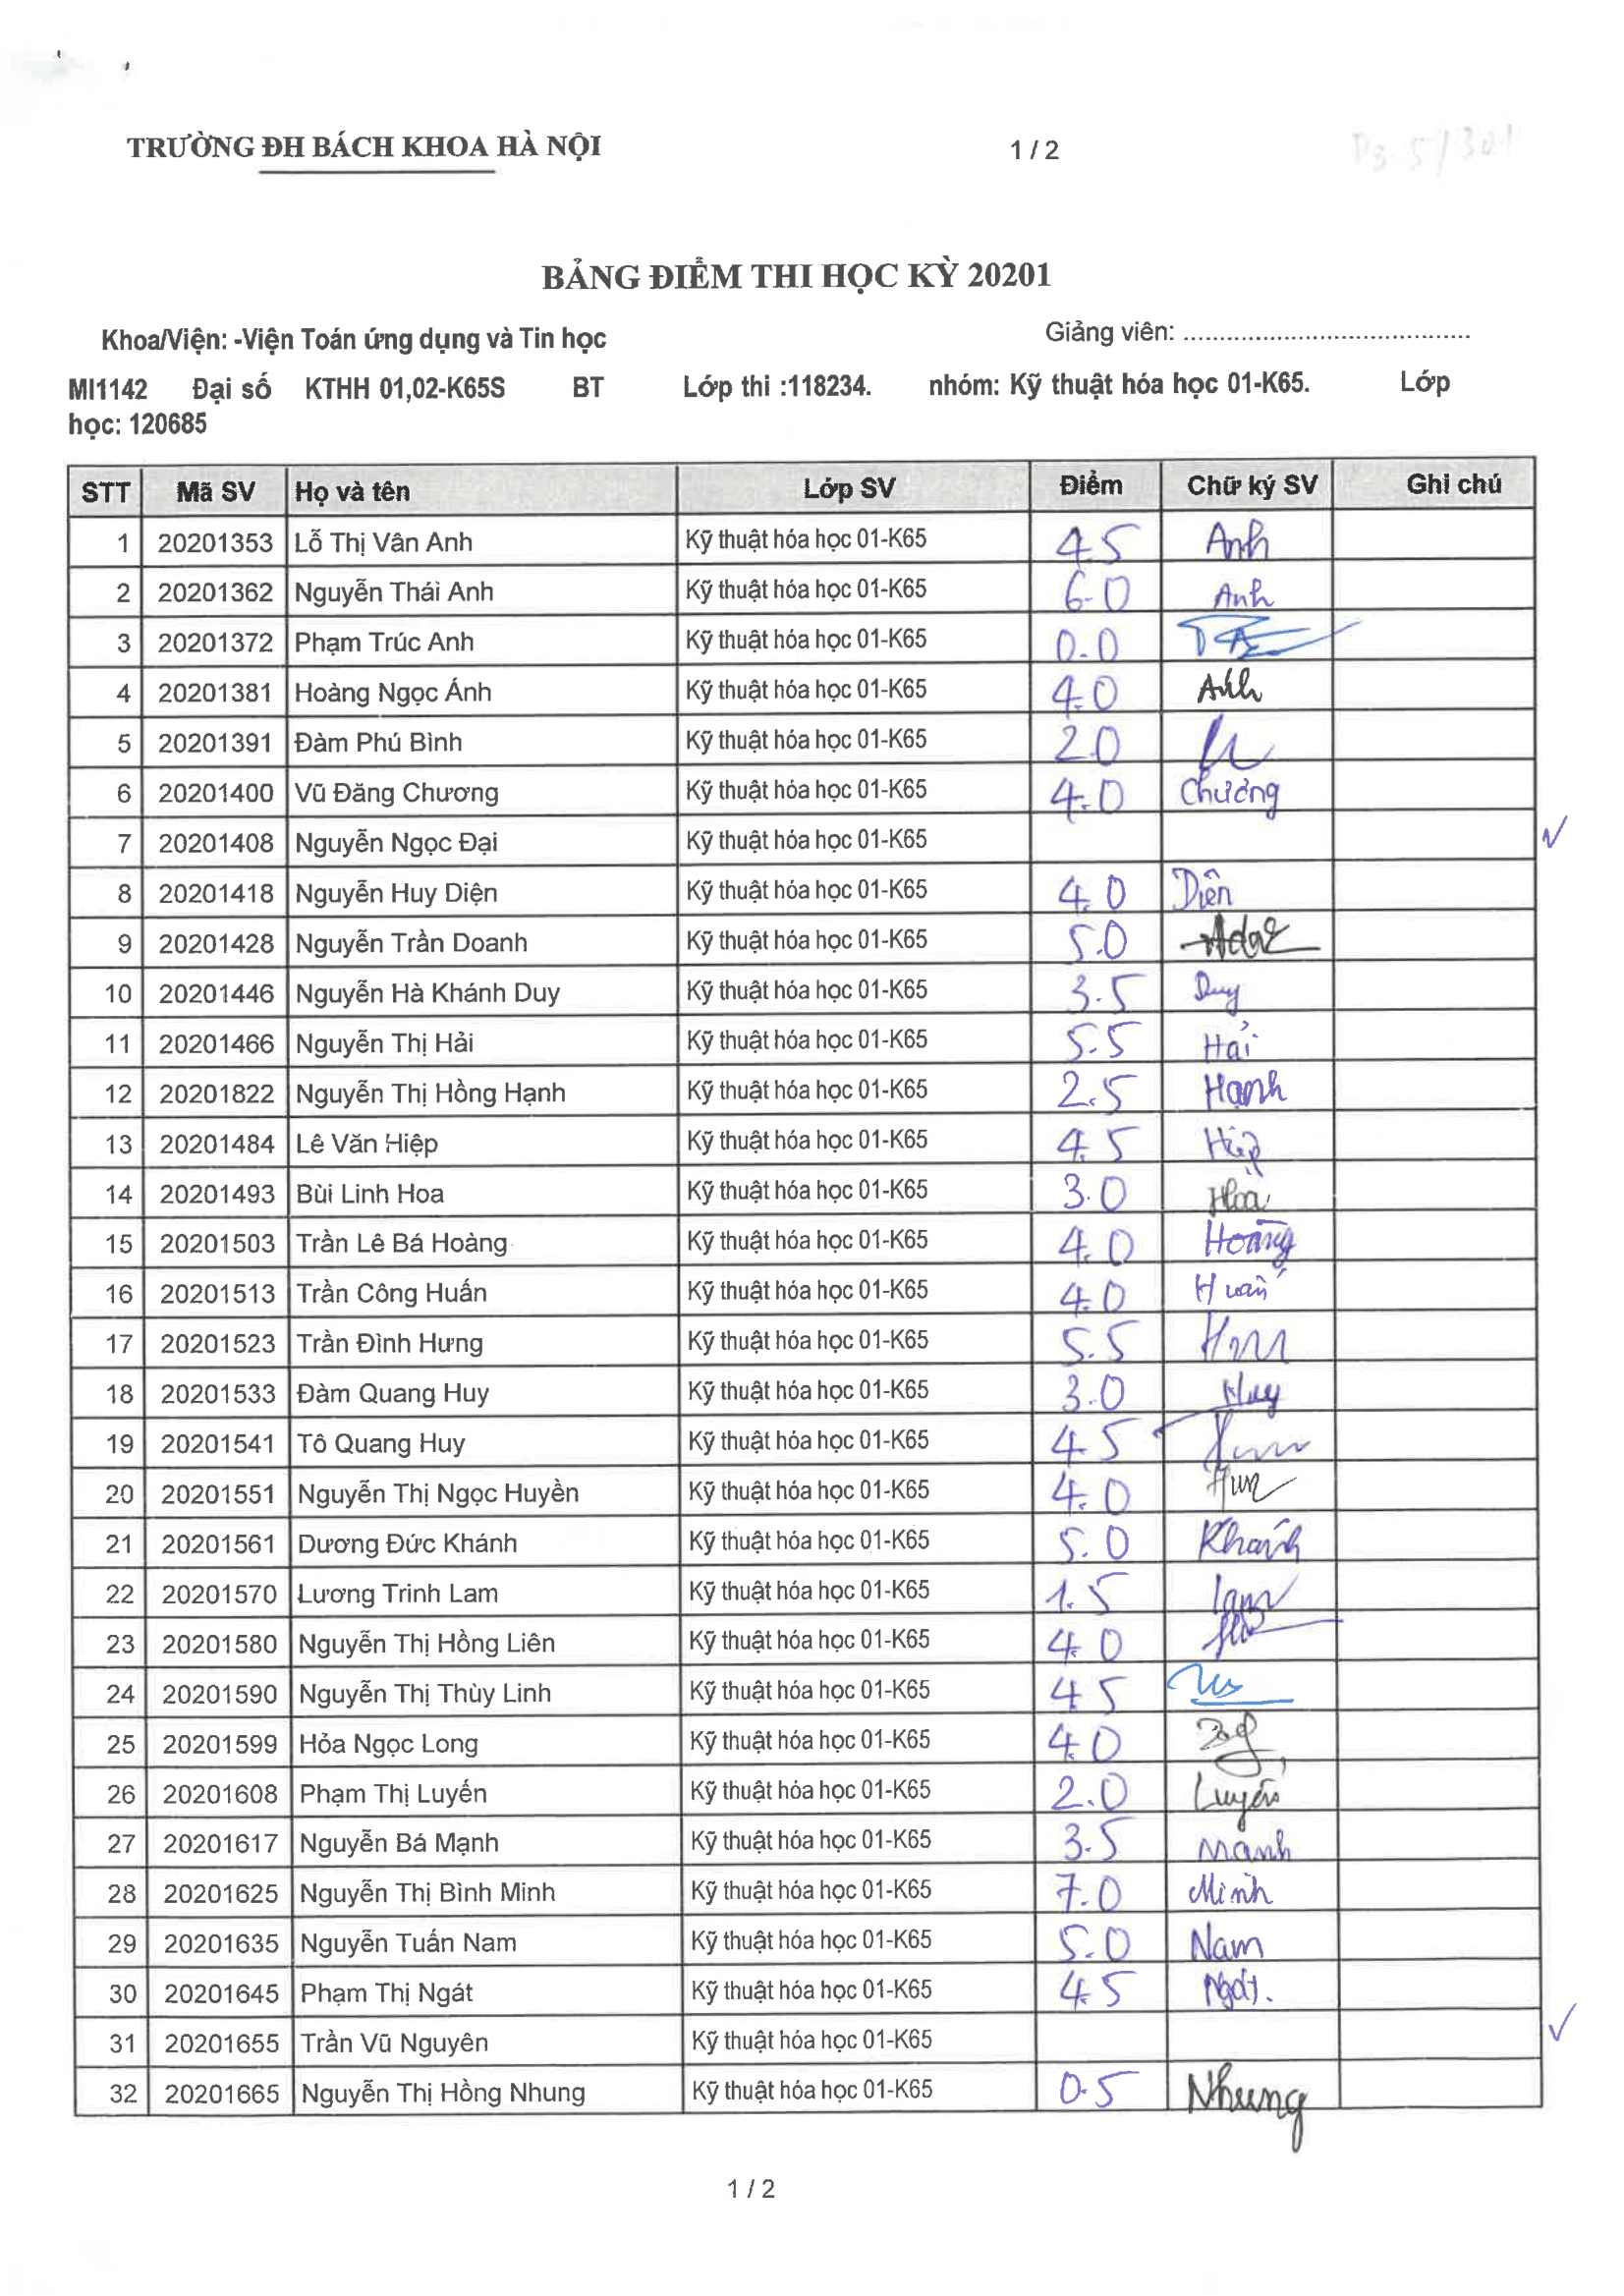 TRƯỜNG ĐH BÁCH KHOA HÀ NỘI 1 / 2
BẢNG ĐIỂM THI HỌC KỲ 20201
Khoa/Viện: -Viện Toán ứng dụng và Tin học Giảng viên: ........................................
MI1142 Đại số KTHH 01,02-K65S BT Lớp thi :118234. nhóm: Kỹ thuật hóa học 01-K65. Lớp
học: 120685
STT Mã SV Họ và tên Lớp SV Điểm Chữ ký SV Ghi chú
1 20201353 Lỗ Thị Vân Anh Kỹ thuật hóa học 01-K65 4.5 Anh
2 20201362 Nguyễn Thái Anh Kỹ thuật hóa học 01-K65 6.0 Anh
3 20201372 Phạm Trúc Anh Kỹ thuật hóa học 01-K65 0.0
4 20201381 Hoàng Ngọc Ánh Kỹ thuật hóa học 01-K65 4.0 Ánh
5 20201391 Đàm Phú Bình Kỹ thuật hóa học 01-K65 2.0
6 20201400 Vũ Đăng Chương Kỹ thuật hóa học 01-K65 4.0 Chương
7 20201408 Nguyễn Ngọc Đại Kỹ thuật hóa học 01-K65
8 20201418 Nguyễn Huy Diện Kỹ thuật hóa học 01-K65 4.0 Diện
9 20201428 Nguyễn Trần Doanh Kỹ thuật hóa học 01-K65 5.0
10 20201446 Nguyễn Hà Khánh Duy Kỹ thuật hóa học 01-K65 3.5 Duy
11 20201466 Nguyễn Thị Hải Kỹ thuật hóa học 01-K65 5.5 Hải
12 20201822 Nguyễn Thị Hồng Hạnh Kỹ thuật hóa học 01-K65 2.5 Hạnh
13 20201484 Lê Văn Hiệp Kỹ thuật hóa học 01-K65 4.5 Hiệp
14 20201493 Bùi Linh Hoa Kỹ thuật hóa học 01-K65 3.0 Hoa
15 20201503 Trần Lê Bá Hoàng Kỹ thuật hóa học 01-K65 4.0 Hoàng
16 20201513 Trần Công Huấn Kỹ thuật hóa học 01-K65 4.0 Huấn
17 20201523 Trần Đình Hưng Kỹ thuật hóa học 01-K65 5.5
18 20201533 Đàm Quang Huy Kỹ thuật hóa học 01-K65 3.0 Huy
19 20201541 Tô Quang Huy Kỹ thuật hóa học 01-K65 4.5
20 20201551 Nguyễn Thị Ngọc Huyền Kỹ thuật hóa học 01-K65 4.0
21 20201561 Dương Đức Khánh Kỹ thuật hóa học 01-K65 5.0 Khánh
22 20201570 Lương Trinh Lam Kỹ thuật hóa học 01-K65 1.5 Lam
23 20201580 Nguyễn Thị Hồng Liên Kỹ thuật hóa học 01-K65 4.0
24 20201590 Nguyễn Thị Thùy Linh Kỹ thuật hóa học 01-K65 4.5
25 20201599 Hỏa Ngọc Long Kỹ thuật hóa học 01-K65 4.0
26 20201608 Phạm Thị Luyến Kỹ thuật hóa học 01-K65 2.0 Luyến
27 20201617 Nguyễn Bá Mạnh Kỹ thuật hóa học 01-K65 3.5 Mạnh
28 20201625 Nguyễn Thị Bình Minh Kỹ thuật hóa học 01-K65 7.0 Minh
29 20201635 Nguyễn Tuấn Nam Kỹ thuật hóa học 01-K65 5.0 Nam
30 20201645 Phạm Thị Ngát Kỹ thuật hóa học 01-K65 4.5 Ngát.
31 20201655 Trần Vũ Nguyên Kỹ thuật hóa học 01-K65
32 20201665 Nguyễn Thị Hồng Nhung Kỹ thuật hóa học 01-K65 0.5 Nhung
1 / 2